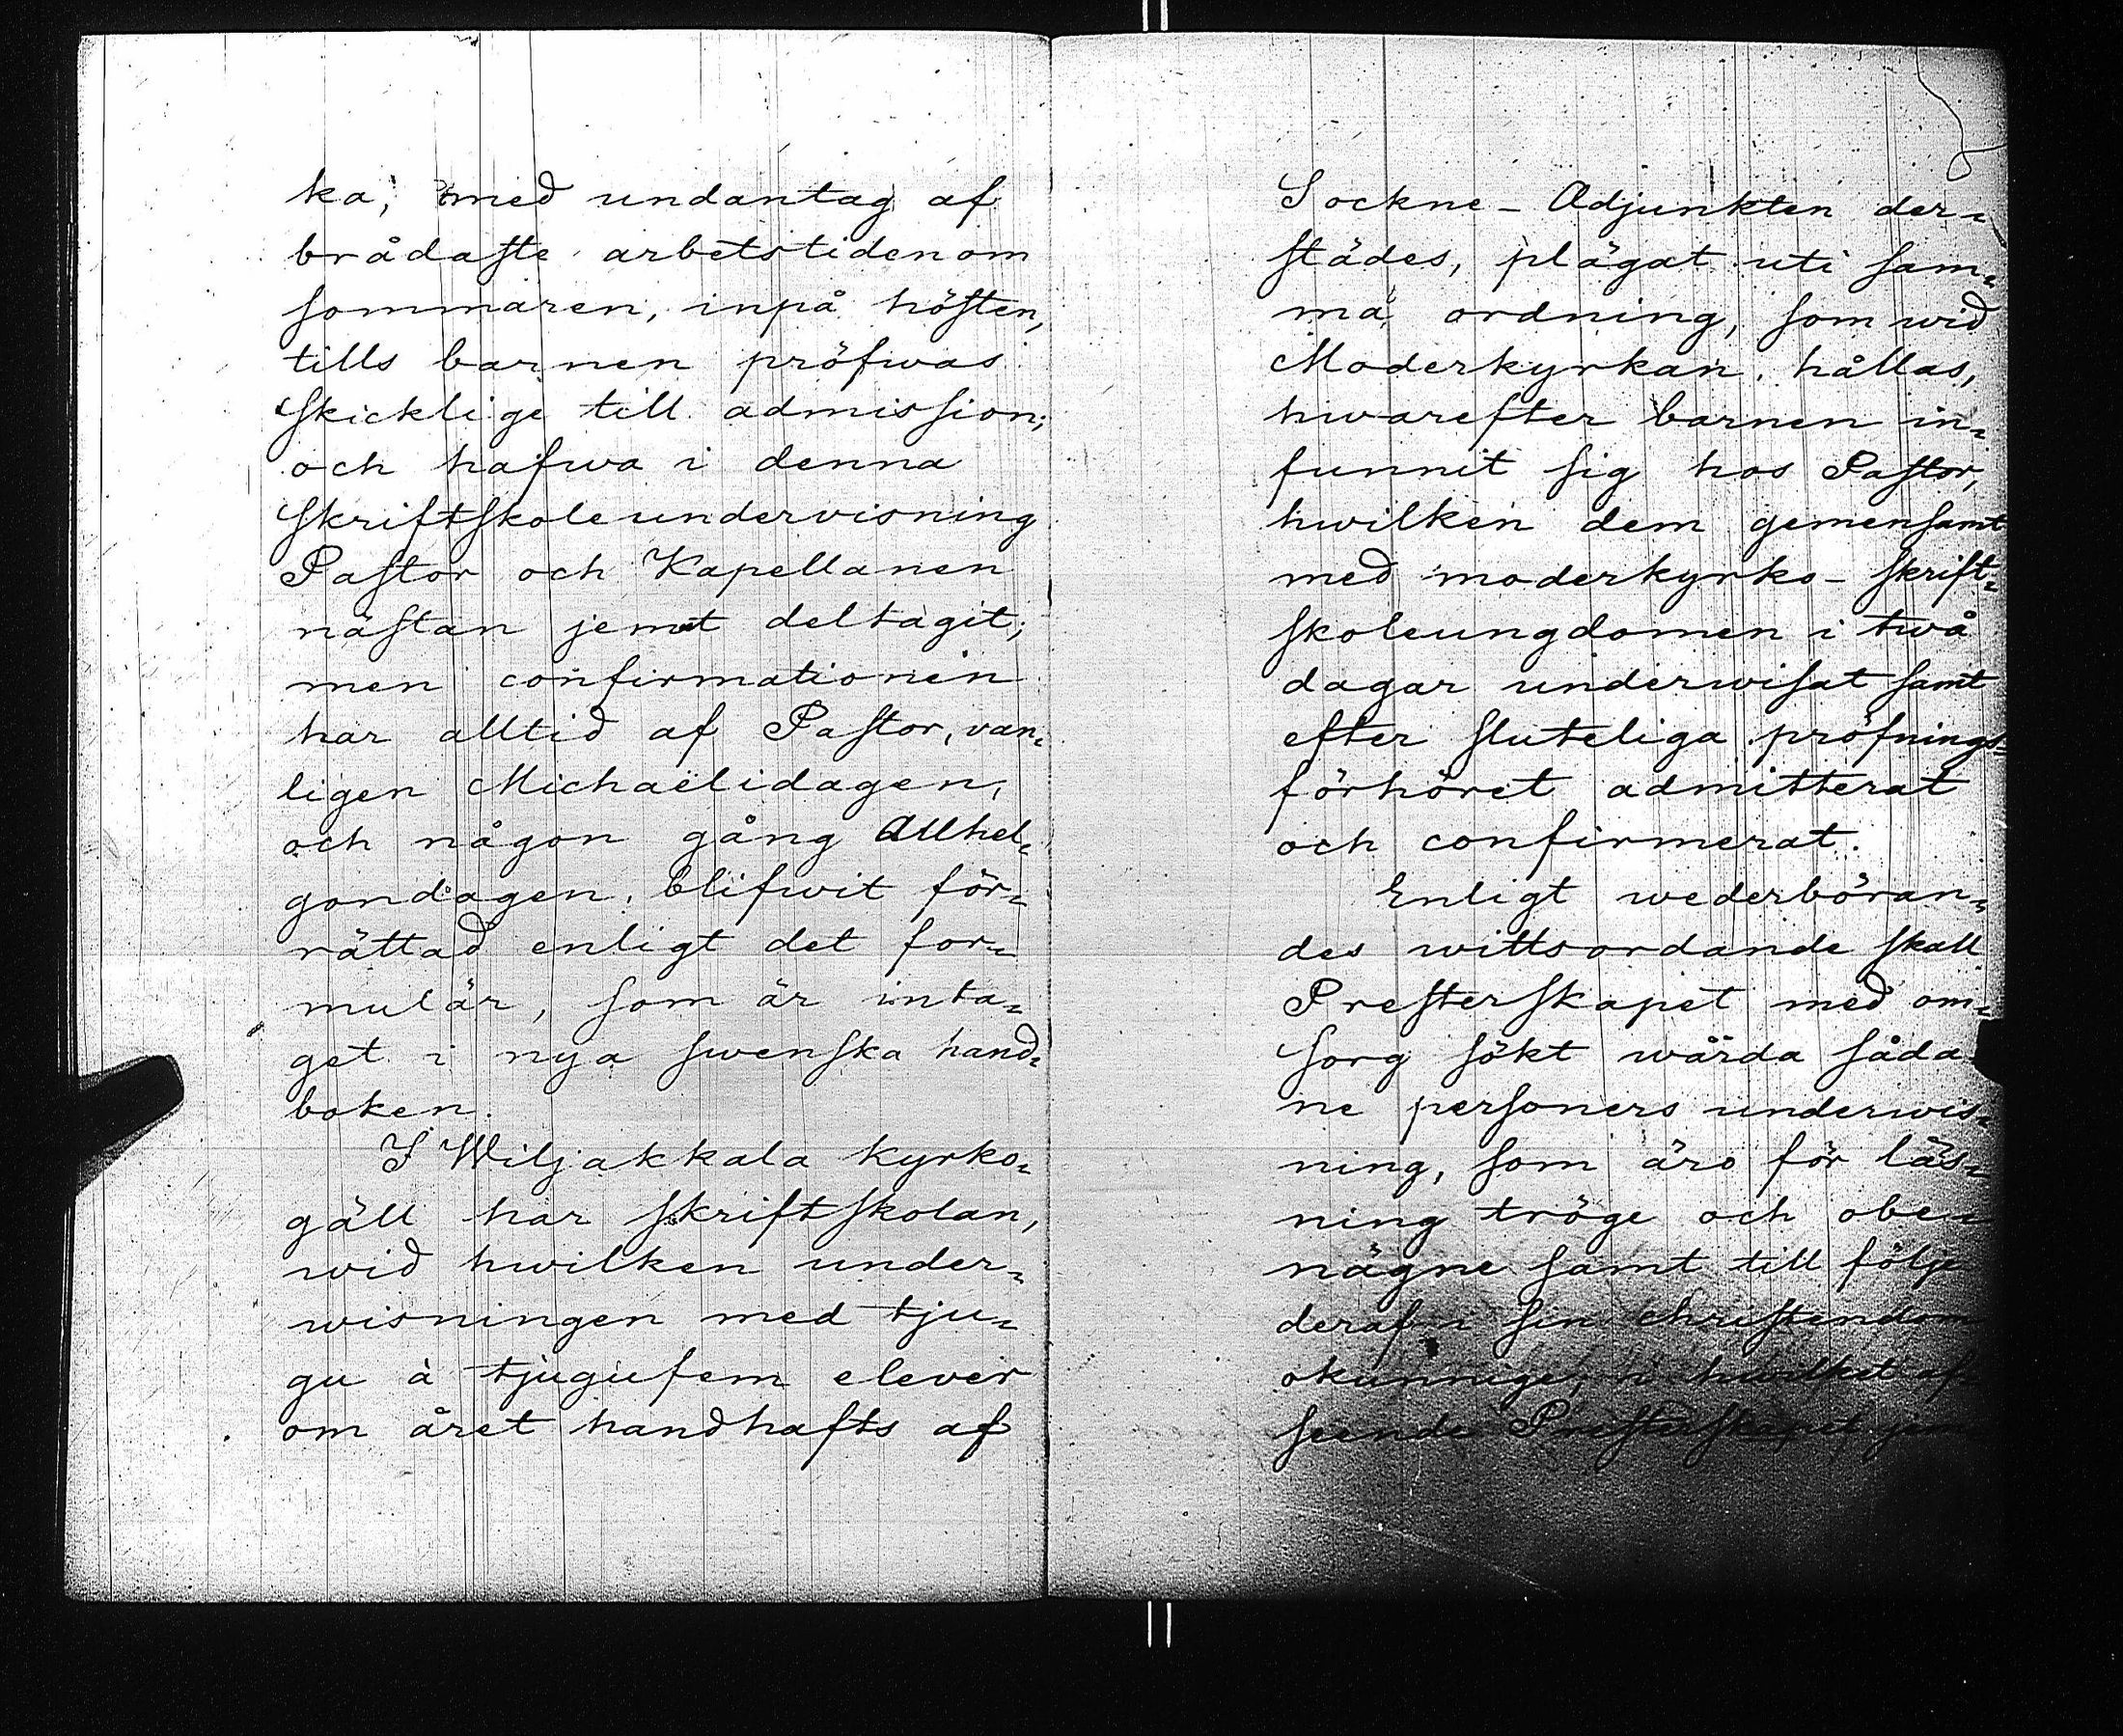 ka, med undantag af
brådaste arbetstiden om
sommaren, inpå hösten,
tills barnen pröfwas
skicklige till admission;
och hafwa i denna
Skriftskoleundervisning
Pastor och Kapellanen
nästan jemt deltagit;
men confirmationen
har alltid af Pastor, van=
ligen Michaëlidagen,
och någon gång Allhel=
gondagen, blifwit för=
rättad enligt det for=
mulär, som är inta=
get i nya swenska hand=
boken.
I Wiljakkala kyrko=
gäll har skriftskolan,
wid hwilken under=
wisningen med tju=
gu à tjugufem elever
om året handhafts af
Sockne-Adjunkten der=
städes, plägat uti sam=
ma ordning, som wid
Moderkyrkan, hållas,
hwarefter barnen in=
funnit sig hos Pastor,
hwilken dem gemensamt
med moderkyrko-skrift=
skoleungdomen i twå
dagar underwisat samt
efter sluteliga pröfnings=
förhöret admitterat
och confirmerat.
Enligt wederböran=
des wittsordande skall
Presterskapet med om=
sorg sökt wårda såda
ne personers underwis=
ning, som äro för läs=
ning tröge och obe=
nägne samt till följe
deraf i sin christendom
okunnige; i hwilket af=
seende Presterskapet jem